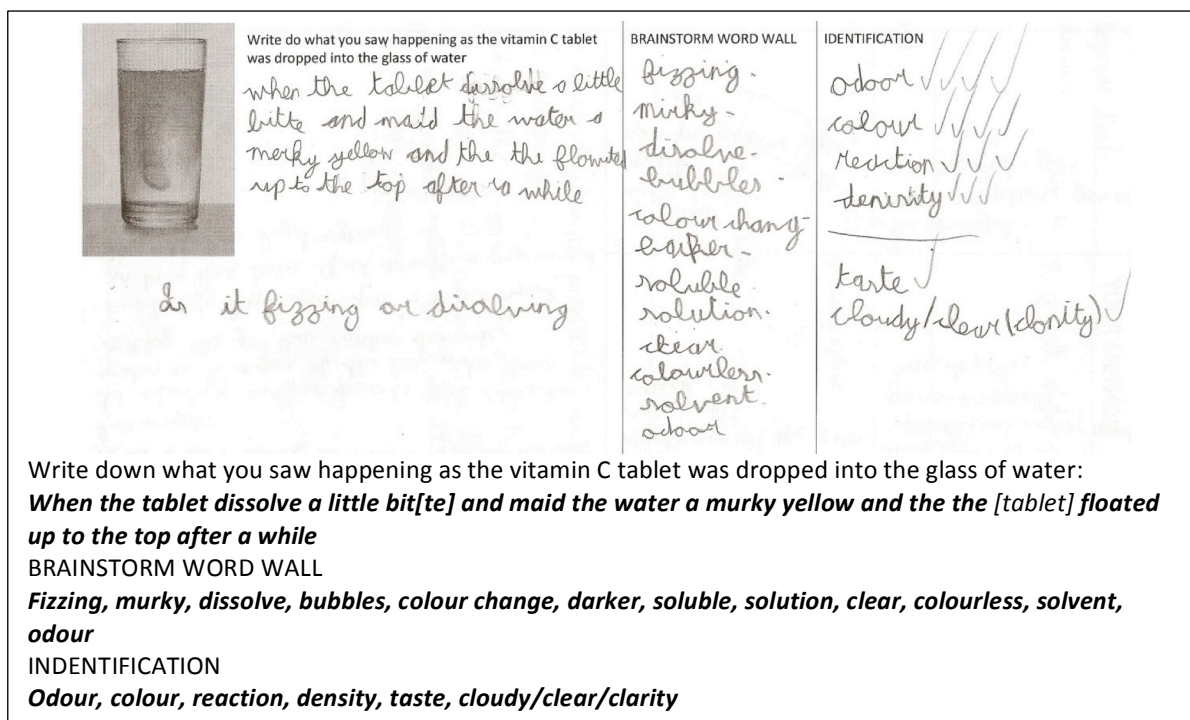 Write do what you saw happening as the vitamin C tablet
was dropped into the glass of water
when the tablet dissolve a little
bitte and maid the water a
merky yellow and the the flowted
up to the top after a while
Is it fizzing or disolving
BRAINSTORM WORD WALL
fizzing.
mirky-
disolve-
bubbles-
colour chang-
soluble.
solution.
clear.
colourless.
solvent.
odour
IDENTIFICATION
odour ✓✓✓✓
colour ✓✓✓✓
reaction ✓✓✓
denisity ✓✓✓
taste ✓
cloudy/clear (clarity) ✓
Write down what you saw happening as the vitamin C tablet was dropped into the glass of water:
When the tablet dissolve a little bit[te] and maid the water a murky yellow and the the [tablet] floated
up to the top after a while
BRAINSTORM WORD WALL
Fizzing, murky, dissolve, bubbles, colour change, darker, soluble, solution, clear, colourless, solvent,
odour
INDENTIFICATION
Odour, colour, reaction, density, taste, cloudy/clear/clarity